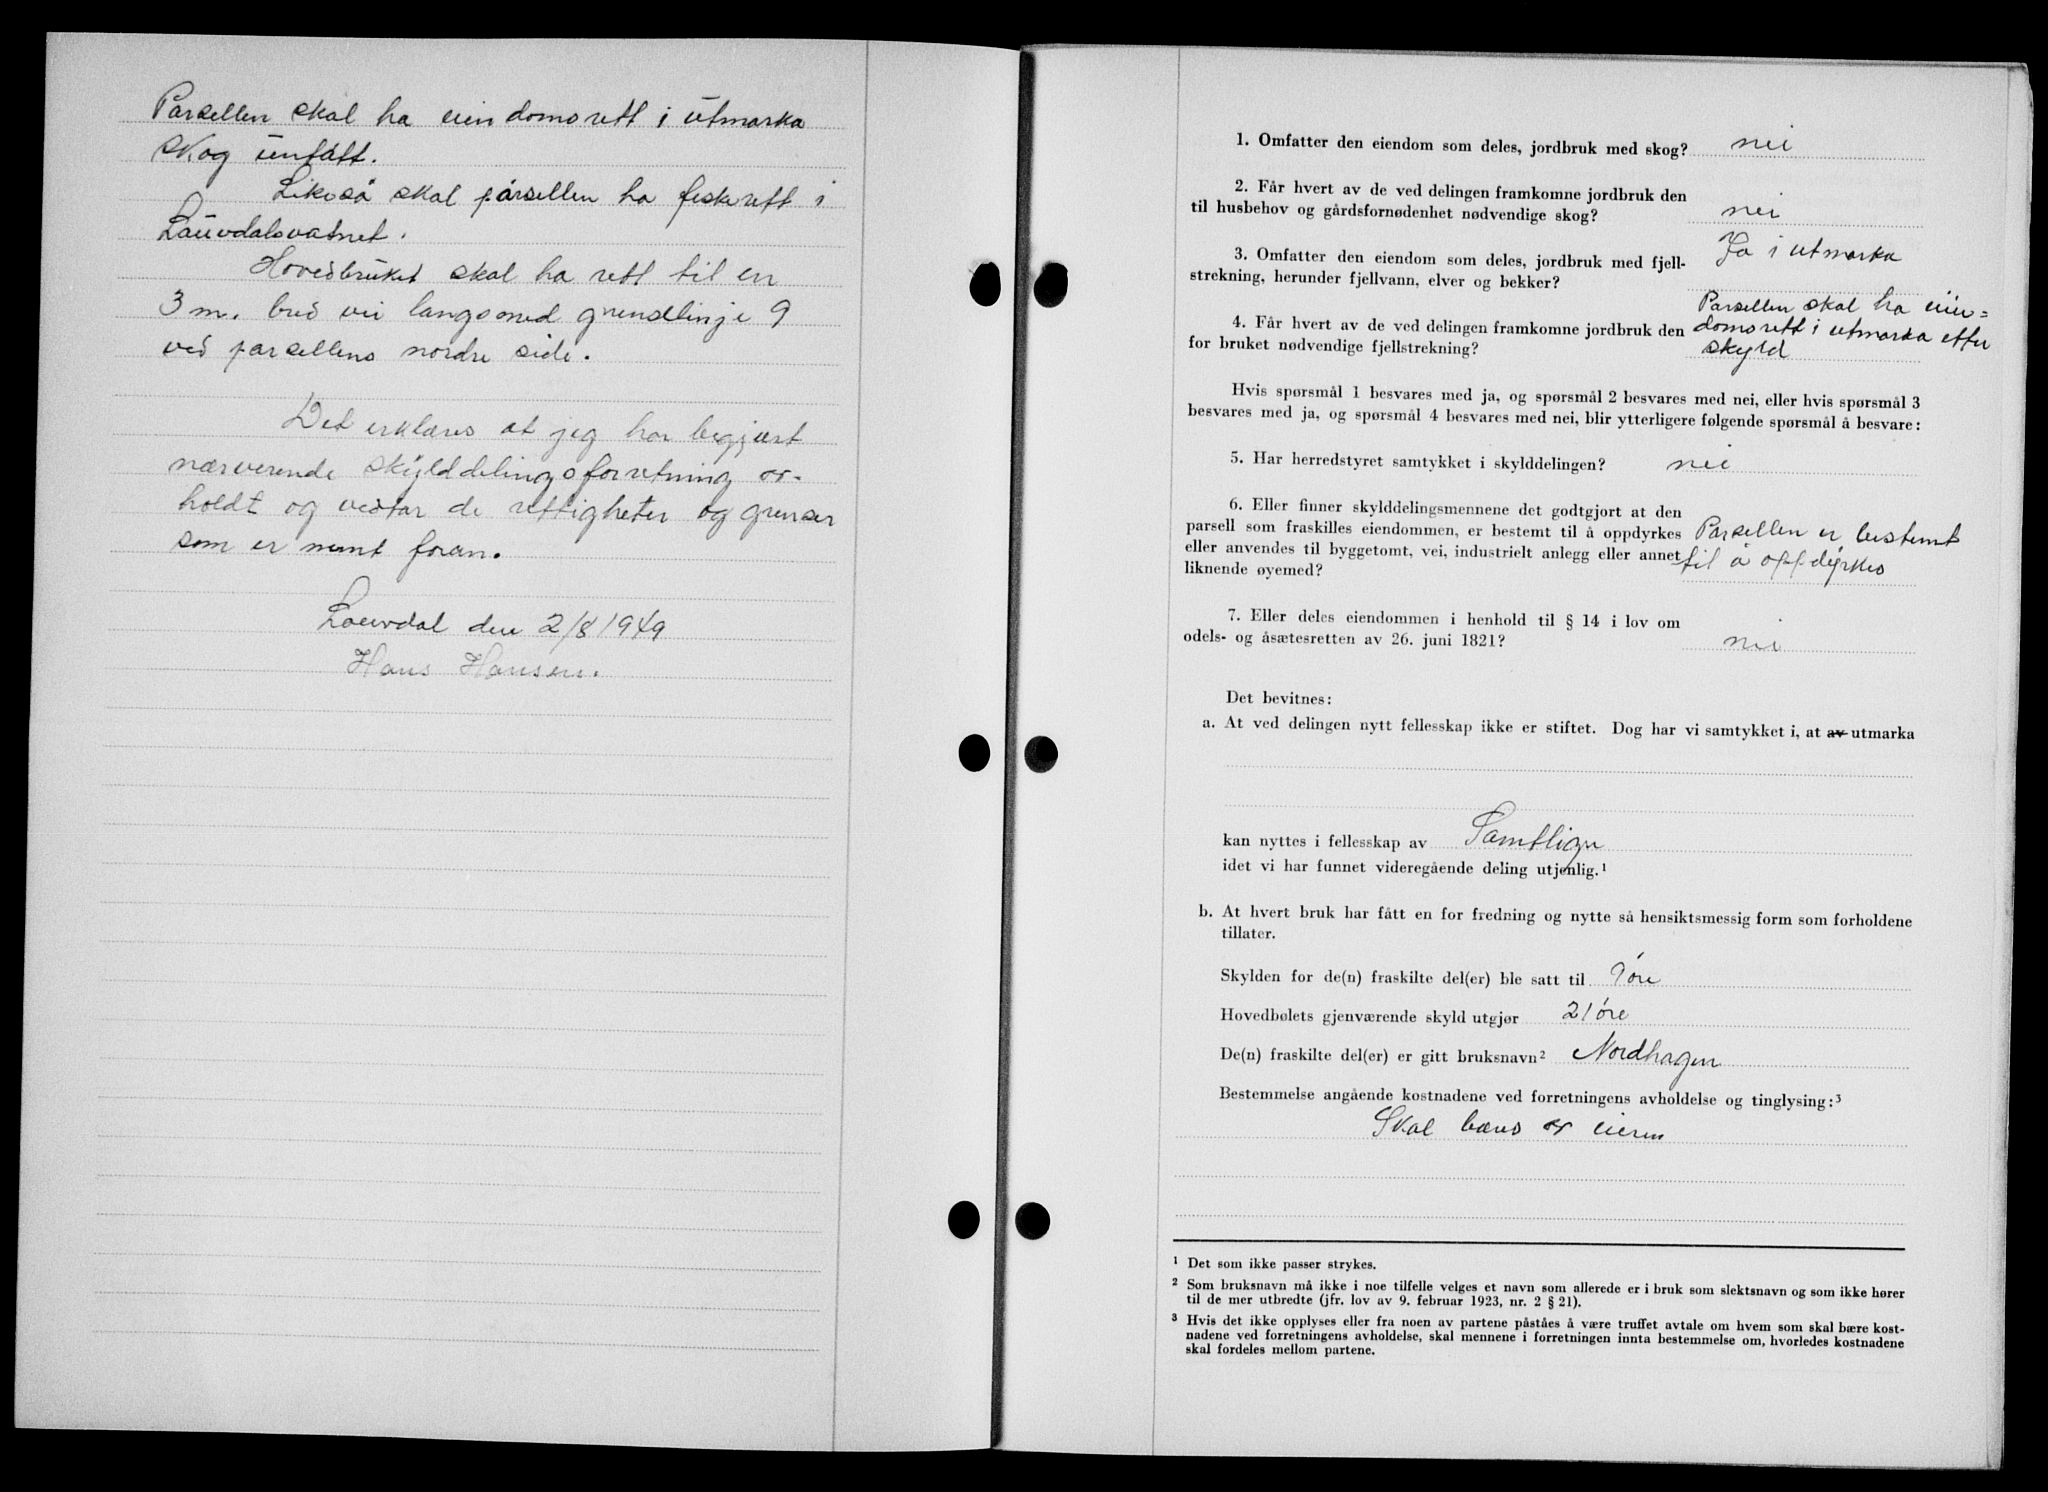 Parsellen skal ha eiendomsrett i utmarka
skog untatt.
Likeså skal parsellen ha fiskerett i
Lauvdalsvatnet.
Hovedbruket skal ha rett til en
3 m. bred vei langsmed grenselinje 9
ved parsellens nordre side.
Det erklæres at jeg har begjært
nærverende skylddelingsforretning av-
holdt og vedtar de rettigheter og grenser
som er nevnt foran.
Lauvdal den 2/8 1949
Hans Hansen.
1. Omfatter den eiendom som deles, jordbruk med skog? nei
2. Får hvert av de ved delingen framkomne jordbruk den
til husbehov og gårdsfornødenhet nødvendige skog? nei
3. Omfatter den eiendom som deles, jordbruk med fjell-
strekning, herunder fjellvann, elver og bekker? Ja i utmarka
4. Får hvert av de ved delingen framkomne jordbruk den
for bruket nødvendige fjellstrekning?
Parsellen skal ha eien=
domsrett i utmarka etter
skyld
Hvis spørsmål 1 besvares med ja, og spørsmål 2 besvares med nei, eller hvis spørsmål 3
besvares med ja, og spørsmål 4 besvares med nei, blir ytterligere følgende spørsmål å besvare:
5. Har herredstyret samtykket i skylddelingen? nei
6. Eller finner skylddelingsmennene det godtgjort at den
parsell som fraskilles eiendommen, er bestemt til å oppdyrkes
eller anvendes til byggetomt, vei, industrielt anlegg eller annet
liknende øyemed?
Parsellen er bestemt
til å oppdyrkes
7. Eller deles eiendommen i henhold til § 14 i lov om
odels- og åsætesretten av 26. juni 1821? nei
Det bevitnes:
a. At ved delingen nytt fellesskap ikke er stiftet. Dog har vi samtykket i, at av utmarka
kan nyttes i fellesskap av Samtlige
idet vi har funnet videregående deling utjenlig.¹
b. At hvert bruk har fått en for fredning og nytte så hensiktsmessig form som forholdene
tillater.
Skylden for de(n) fraskilte del(er) ble satt til 9 øre
Hovedbølets gjenværende skyld utgjør 21 øre
De(n) fraskilte del(er) er gitt bruksnavn² Nordhagen
Bestemmelse angående kostnadene ved forretningens avholdelse og tinglysing:³
Skal bæres av eieren
¹ Det som ikke passer strykes.
² Som bruksnavn må ikke i noe tilfelle velges et navn som allerede er i bruk som slektsnavn og som ikke hører
til de mer utbredte (jfr. lov av 9. februar 1923, nr. 2 § 21).
³ Hvis det ikke opplyses eller fra noen av partene påståes å være truffet avtale om hvem som skal bære kost-
nadene ved forretningens avholdelse, skal mennene i forretningen innta bestemmelse om, hvorledes kostnadene
skal fordeles mellom partene.